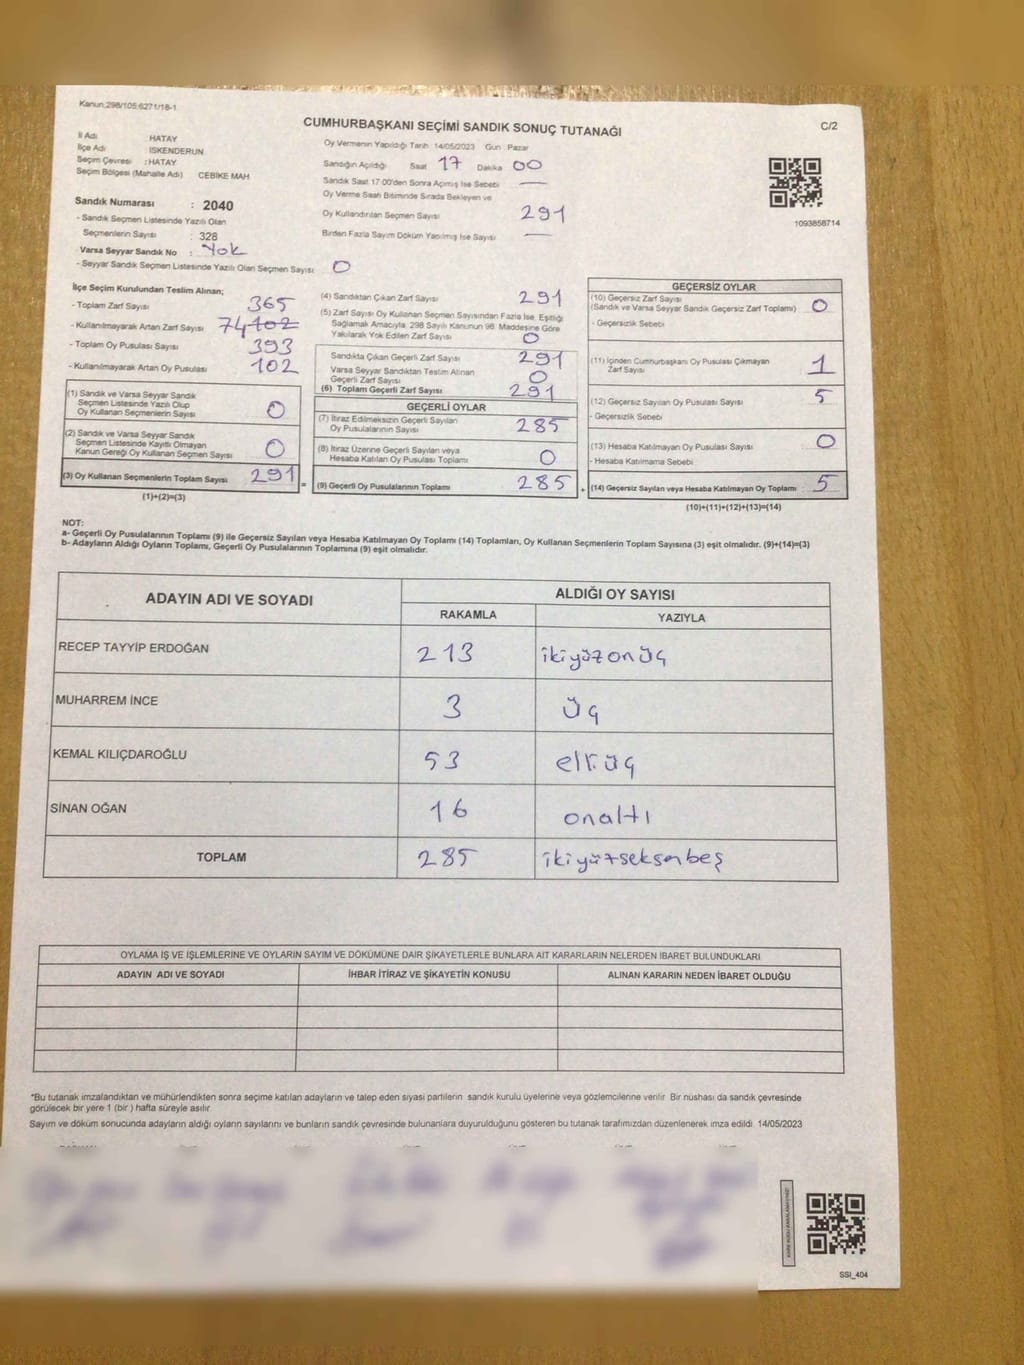 Kanun:298/105,6271/18-1
CUMHURBAŞKANI SEÇİMİ SANDIK SONUÇ TUTANAĞI
C/2
İl Adı HATAY
İlçe Adı İSKENDERUN
Seçim Çevresi : HATAY
Seçim Bölgesi (Mahalle Adı) CEBİKE MAH
Sandık Numarası : 2040
- Sandık Seçmen Listesinde Yazılı Olan
Seçmenlerin Sayısı : 328
Varsa Seyyar Sandık No : Yok
- Seyyar Sandık Seçmen Listesinde Yazılı Olan Seçmen Sayısı 0
Oy Vermenin Yapıldığı Tarih 14/05/2023 Gün Pazar
Sandığın Açıldığı Saat 17 Dakika 00
Sandık Saat 17:00'den Sonra Açımış İse Sebebi —
Oy Verme Saati Bitiminde Sırada Bekleyen ve
Oy Kullandırılan Seçmen Sayısı 291
Birden Fazla Sayım Döküm Yapılmış İse Sayısı —
1093858714
İlçe Seçim Kurulundan Teslim Alınan;
- Toplam Zarf Sayısı 365
- Kullanılmayarak Artan Zarf Sayısı 74 102
- Toplam Oy Pusulası Sayısı 393
- Kullanılmayarak Artan Oy Pusulası 102
(1) Sandık ve Varsa Seyyar Sandık
Seçmen Listesinde Yazılı Olup
Oy Kullanan Seçmenlerin Sayısı 0
(2) Sandık ve Varsa Seyyar Sandık
Seçmen Listesinde Kayıtlı Olmayan
Kanun Gereği Oy Kullanan Seçmen Sayısı 0
(3) Oy Kullanan Seçmenlerin Toplam Sayısı 291
(1)+(2)=(3)
(4) Sandıktan Çıkan Zarf Sayısı 291
(5) Zarf Sayısı Oy Kullanan Seçmen Sayısından Fazla İse, Eşitliği
Sağlamak Amacıyla, 298 Sayılı Kanunun 98. Maddesine Göre
Yakılarak Yok Edilen Zarf Sayısı 0
Sandıkta Çıkan Geçerli Zarf Sayısı 291
Varsa Seyyar Sandıktan Teslim Alınan
Geçerli Zarf Sayısı 0
(6) Toplam Geçerli Zarf Sayısı 291
GEÇERLİ OYLAR
(7) İtiraz Edilmeksizin Geçerli Sayılan
Oy Pusulalarının Sayısı 285
(8) İtiraz Üzerine Geçerli Sayılan veya
Hesaba Katılan Oy Pusulası Toplamı 0
= (9) Geçerli Oy Pusulalarının Toplamı 285
GEÇERSİZ OYLAR
(10) Geçersiz Zarf Sayısı
(Sandık ve Varsa Seyyar Sandık Geçersiz Zarf Toplamı) 0
- Geçersizlik Sebebi
(11) İçinden Cumhurbaşkanı Oy Pusulası Çıkmayan
Zarf Sayısı 1
(12) Geçersiz Sayılan Oy Pusulası Sayısı 5
- Geçersizlik Sebebi
(13) Hesaba Katılmayan Oy Pusulası Sayısı 0
- Hesaba Katılmama Sebebi
+ (14) Geçersiz Sayılan veya Hesaba Katılmayan Oy Toplamı 5
(10)+(11)+(12)+(13)=(14)
NOT:
a- Geçerli Oy Pusulalarının Toplamı (9) ile Geçersiz Sayılan veya Hesaba Katılmayan Oy Toplamı (14) Toplamları, Oy Kullanan Seçmenlerin Toplam Sayısına (3) eşit olmalıdır. (9)+(14)=(3)
b- Adayların Aldığı Oyların Toplamı, Geçerli Oy Pusulalarının Toplamına (9) eşit olmalıdır.
ADAYIN ADI VE SOYADI ALDIĞI OY SAYISI
RAKAMLA YAZIYLA
RECEP TAYYİP ERDOĞAN 213 ikiyüzonüç
MUHARREM İNCE 3 üç
KEMAL KILIÇDAROĞLU 53 elliüç
SİNAN OĞAN 16 onaltı
TOPLAM 285 ikiyüzseksenbeş
OYLAMA İŞ VE İŞLEMLERİNE VE OYLARIN SAYIM VE DÖKÜMÜNE DAİR ŞİKAYETLERLE BUNLARA AİT KARARLARIN NELERDEN İBARET BULUNDUKLARI
ADAYIN ADI VE SOYADI İHBAR İTİRAZ VE ŞİKAYETİN KONUSU ALINAN KARARIN NEDEN İBARET OLDUĞU
*Bu tutanak imzalandıktan ve mühürlendikten sonra seçime katılan adayların ve talep eden siyasi partilerin sandık kurulu üyelerine veya gözlemcilerine verilir. Bir nüshası da sandık çevresinde
görülecek bir yere 1 (bir) hafta süreyle asılır.
Sayım ve döküm sonucunda adayların aldığı oyların sayılarını ve bunların sandık çevresinde bulunanlara duyurulduğunu gösteren bu tutanak tarafımızdan düzenlenerek imza edildi. 14/05/2023
SSI_404